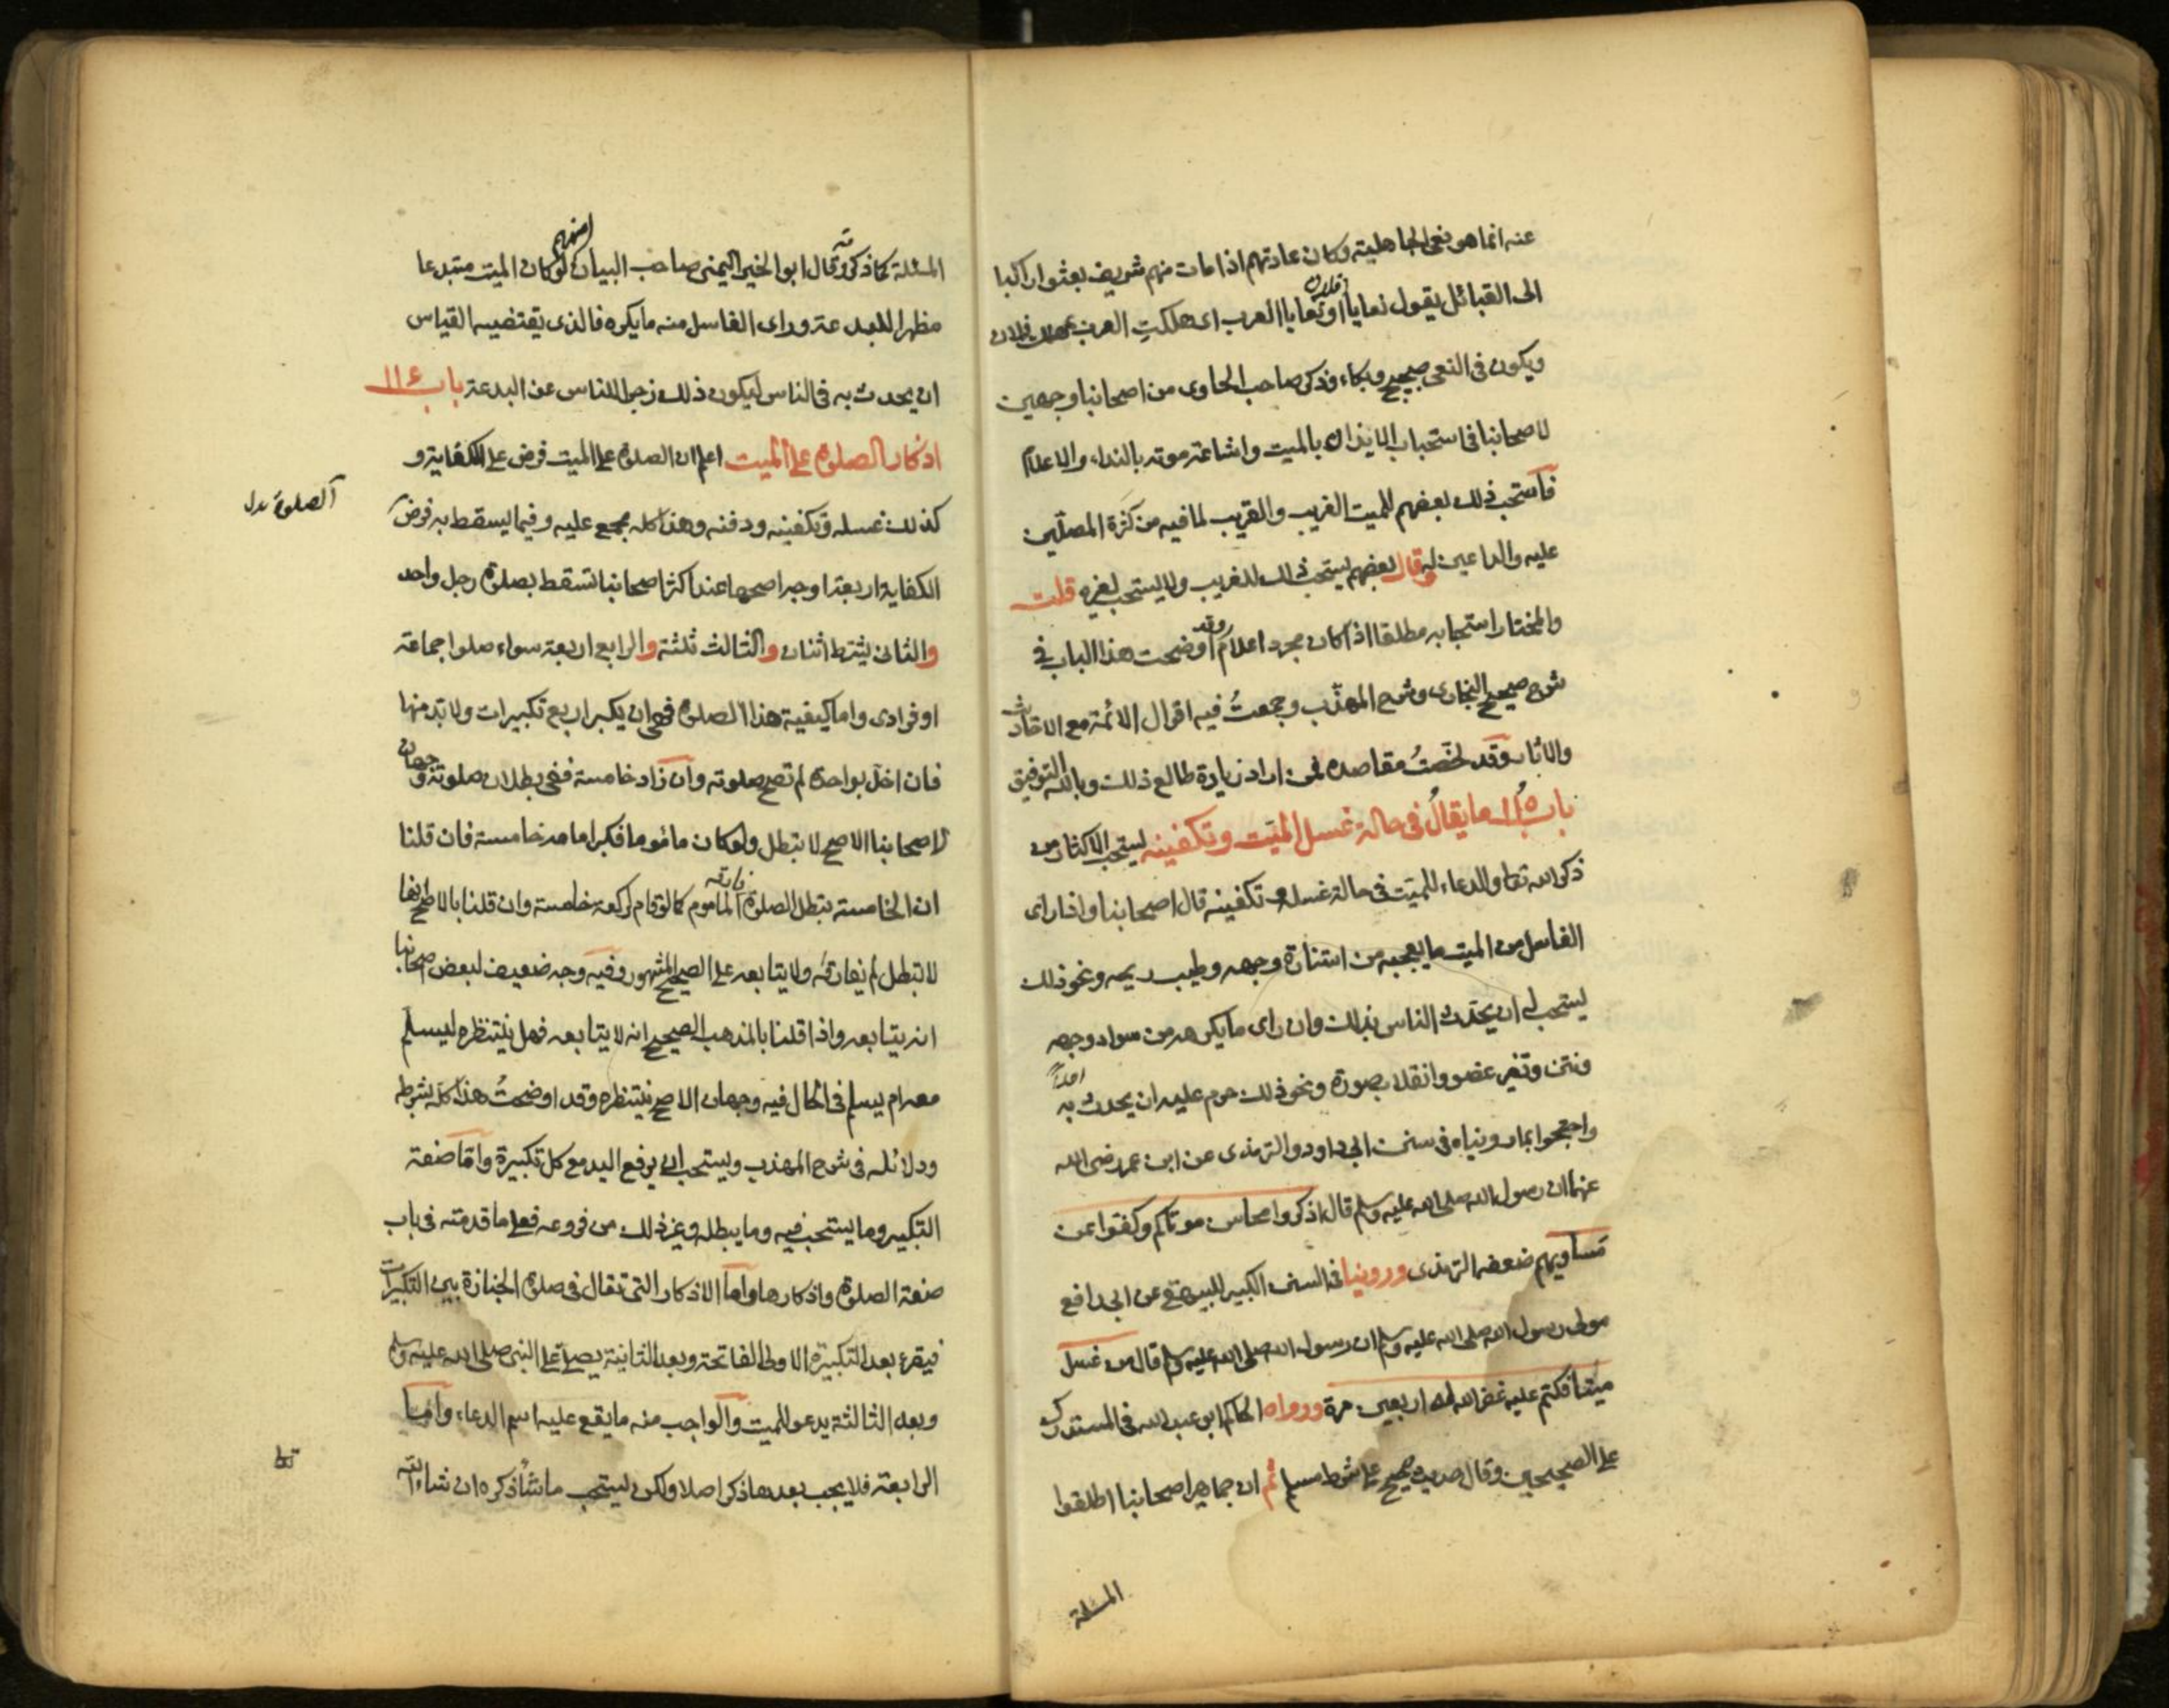 عنه انما هو نعي الجاهلية وكان عادتهم اذا مات منهم شريف بعثوا راكبا
الى القبائل يقول نعايا فلان او نعايا العرب اي هلكت العرب بمهلك فلان
ويكون في النعي ضجيج وبكاء وذكر صاحب الحاوي من اصحابنا وجهين
لاصحابنا في استحباب الايذان بالميت واشاعة موته بالنداء والاعلام
فاستحب ذلك بعضهم للميت الغريب والقريب لما فيه من كثرة المصلّين
عليه والداعين له وقال بعضهم يستحب ذلك للغريب ولا يستحب لغيره قلت
والمختار استحبابه مطلقا اذا كان مجرد اعلام وقد اوضحت هذا الباب في
شرح صحيح البخاري وشرح المهذّب وجمعتُ فيه اقوال الائمة مع الاحاديث
والاثار وقد لخّصتُ مقاصده فمن اراد زيادة طالع ذلك وبالله التوفيق
باب ١١٥ ما يقالُ في حالة غسل الميّت وتكفينه يستحب الاكثار من
ذكر الله تعا والدعاء للميّت في حالة غسله وتكفينه قال اصحابنا واذا راى
الغاسل من الميت ما يعجبه من استنارة وجهه وطيب ريحه ونحو ذلك
يستحب له ان يحدّث الناس بذلك وان راى ما يكرهه من سواد وجهه
ونتن وتغير عضو وانقلاب صورة ونحو ذلك حرم عليه ان يحدث به احداً
واحتجوا بما رويناه في سنن ابي داود والترمذي عن ابن عمر رضى الله
عنهما ان رسول الله صلى الله عليه وسلم قال اذكروا محاسن موتاكم وكفوا عن
مساويهم ضعفه الترمذي وروينا في السنن الكبير للبيهقي عن ابي رافع
مولى رسول الله صلى الله عليه وسلم ان رسول الله صلى الله عليه وسلم قال من غسل
ميتا فكتم عليه غفر الله له اربعين مرة ورواه الحاكم ابو عبد الله في المستدرك
على الصحيحين وقال حديث صحيح على شرط مسلم ثم ان جماهير اصحابنا اطلقوا
المسئلة
المسئلة كما ذكرته وقال ابو الخير اليمني صاحب البيان منهم لو كان الميت مبتدعا
مظهرا للبدعة وراى الغاسل منه ما يكره فالذي يقتضيه القياس
ان يحدث به في الناس ليكون ذلك زجرا للناس عن البدعة باب ١١٤
اذكار الصلوة على الميت اعلم ان الصلوة على الميت فرض على الكفاية و
كذلك غسله وتكفينه ودفنه وهذا كله مجمع عليه وفيما يسقط به فرض
الصلوة بدل
الكفاية اربعة اوجه اصحها عند اكثر اصحابنا تسقط بصلوة رجل واحد
والثاني يشترط اثنان والثالث ثلثة والرابع اربعة سواء صلوا جماعة
او فرادى واما كيفية هذا الصلوة فهي ان يكبر اربع تكبيرات ولا بد منها
فان اخل بواحدة لم تصح صلوته وان زاد خامسة ففي بطلان صلوته وجهان
لاصحابنا الاصح لا تبطل ولو كان ماموما فكبر امامه خامسة فان قلنا
ان الخامسة تبطل الصلوة فارقه المأموم كما لو قام لركعة خامسة وان قلنا بالاصح انها
لا تبطل لم يفارقه ولا يتابعه على الصحيح المشهور وفيه وجه ضعيف لبعض اصحابنا
انه يتابعه واذا قلنا بالمذهب الصحيح انه لا يتابعه فهل ينتظره ليسلم
معه ام يسلم في الحال فيه وجهان الاصح ينتظره وقد اوضحتُ هذا كله بشرطه
ودلائله في شرح المهذب ويستحب ان يرفع اليد مع كل تكبيرة واما صفة
التكبير وما يستحب فيه وما يبطله وغير ذلك من فروعه فعلى ما قدمته في باب
صفة الصلوة واذكارها واما الاذكار التي تقال في صلوة الجنازة بين التكبيرات
فيقرء بعد التكبيرة الاولى الفاتحة وبعد الثانية يصلى على النبى صلى الله عليه وسلم
وبعد الثالثة يدعو للميت والواجب منه ما يقع عليه اسم الدعاء واما
الرابعة فلا يجب بعدها ذكر اصلا ولكن يستحب ما سأذكره ان شاء الله
تعا